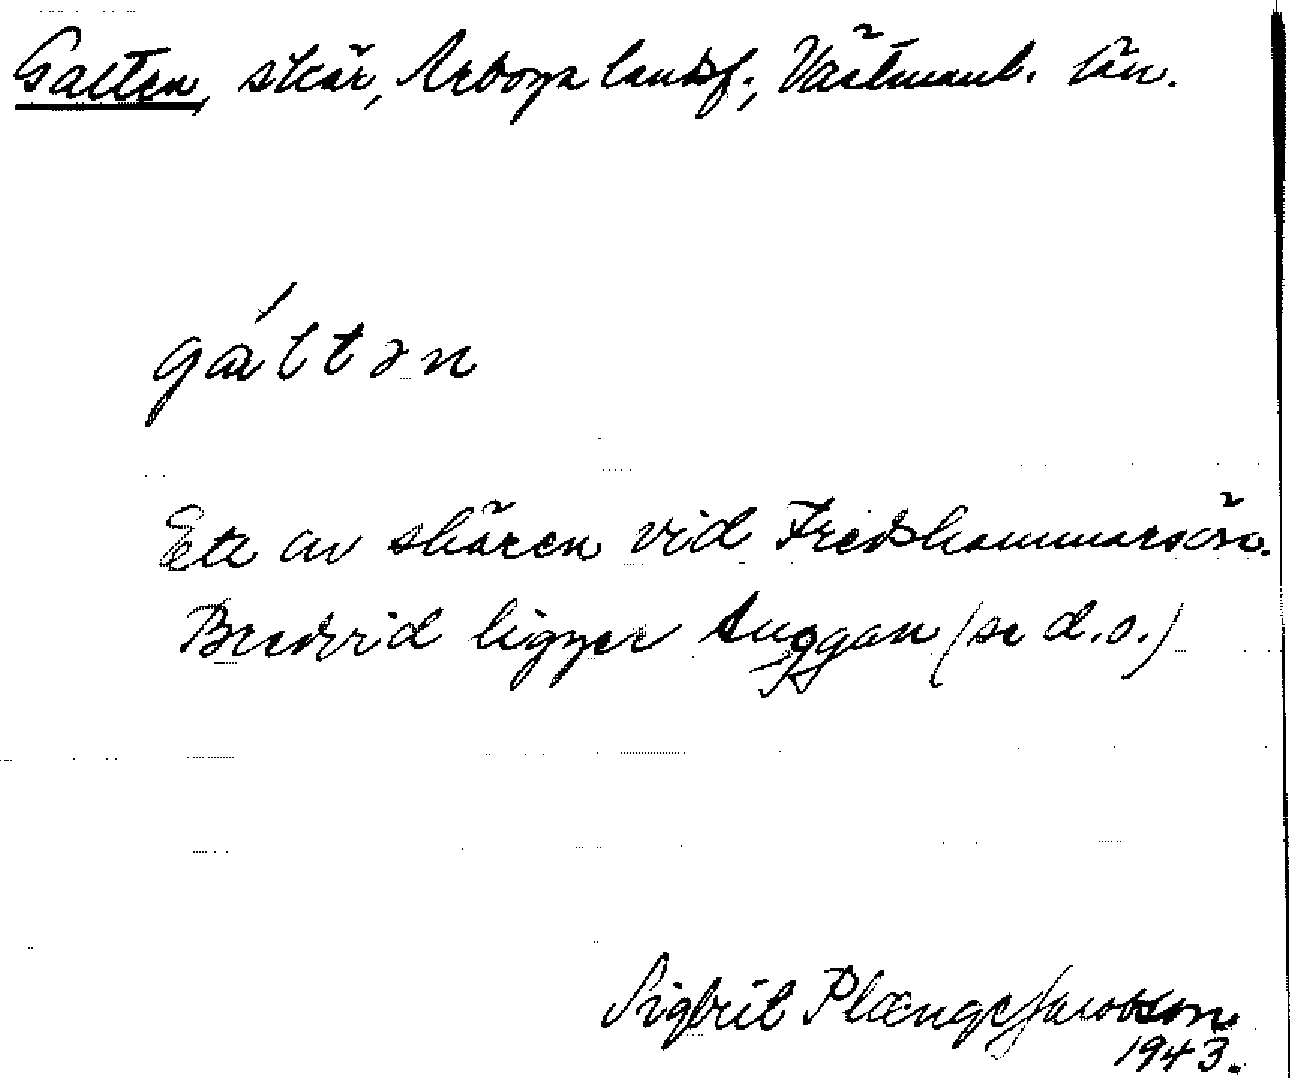 Galten, skär, Arboya landsf., Västmanl. län.
gálltən
Ett av skären vid Fredshammarsön.
Bredvid ligger Suggan (se d.o.)
Sigfrid Plænge Jacobson
1943.